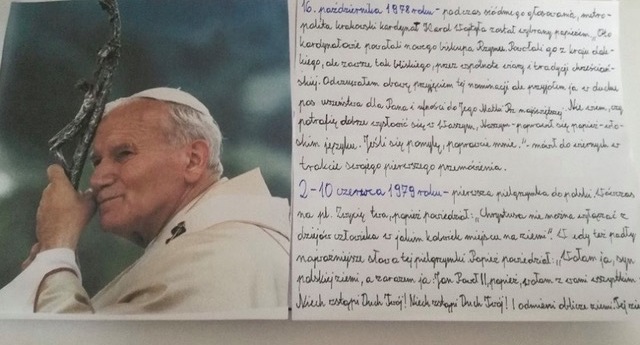 16. października 1978 roku - podczas siódmego głosowania, metro-
polita krakowski kardynał Karol Wojtyła został wybrany papieżem. „Oto
kardynałowie powołali nowego biskupa Rzymu. Powołali go z kraju dale-
kiego, ale zawsze tak bliskiego, przez wspólnotę wiary i tradycji chrześcijań-
skiej. Odczuwałem obawę przyjęciem tej nominacji ale przyjąłem ją w duchu
posłuszeństwa dla Pana i ufności do Jego Matki. Nie wiem, czy
potrafię dobrze w Waszym, Naszym - poprawił się papież - wło-
skim języku. Jeśli się pomylę, poprawcie mnie." - mówił do wiernych w
trakcie swojego pierwszego przemówienia.
2-10 czerwca 1979 roku - pierwsza pielgrzymka do polski. Wówczas
na pl. Zwycięstwa, papież powiedział: „Chrystusa nie można wyłączać z
dziejów człowieka w jakim kolwiek miejscu na ziemi". Wtedy też padły
najważniejsze słowa tej pielgrzymki Papież powiedział: „Wołam ja, syn
polskiej ziemi, a zarazem ja: Jan Paweł II, papież, wołam z wami wszystkimi.
Niech zstąpi Duch Twój! Niech zstąpi Duch Twój! I odmieni oblicze ziemi. Tej